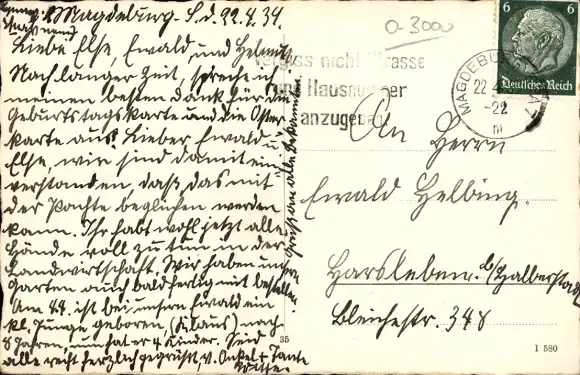 Magdeburg-S. d. 22.4.34.
Liebe Else, Ewald, und Helmut
Nach langer Zeit, spreche ich
meinen besten Dank für die
Geburtstagskarte und die Oster-
karte aus. Lieber Ewald u.
Else, wir sind damit ein-
verstanden, daß, das mit
der Pachte beglichen werden
kann. Ihr habt wohl jetzt alle
Hände voll zu tun in der
Landwirtschaft. Wir haben unsern
Garten auch bald fertig mit bestellen.
Am 4.4. ist bei unsern Ewald ein
kl. Junge geboren, (Klaus) nach
8 Jahren, nun hat er 4 Kinder. Seid
alle recht herzlich gegrüßt, v. Onkel + Tante
Gruß an alle Bekannten
0-3000
Vergiss nicht Strasse
und Hausnummer
anzugeben!
MAGDEBURG
22
-22
m
6 6
Deutsches Reich
An Herrn
Ewald Helbing.
Harsleben. b/Halberstadt
Bleichestr. 348
35
I 580